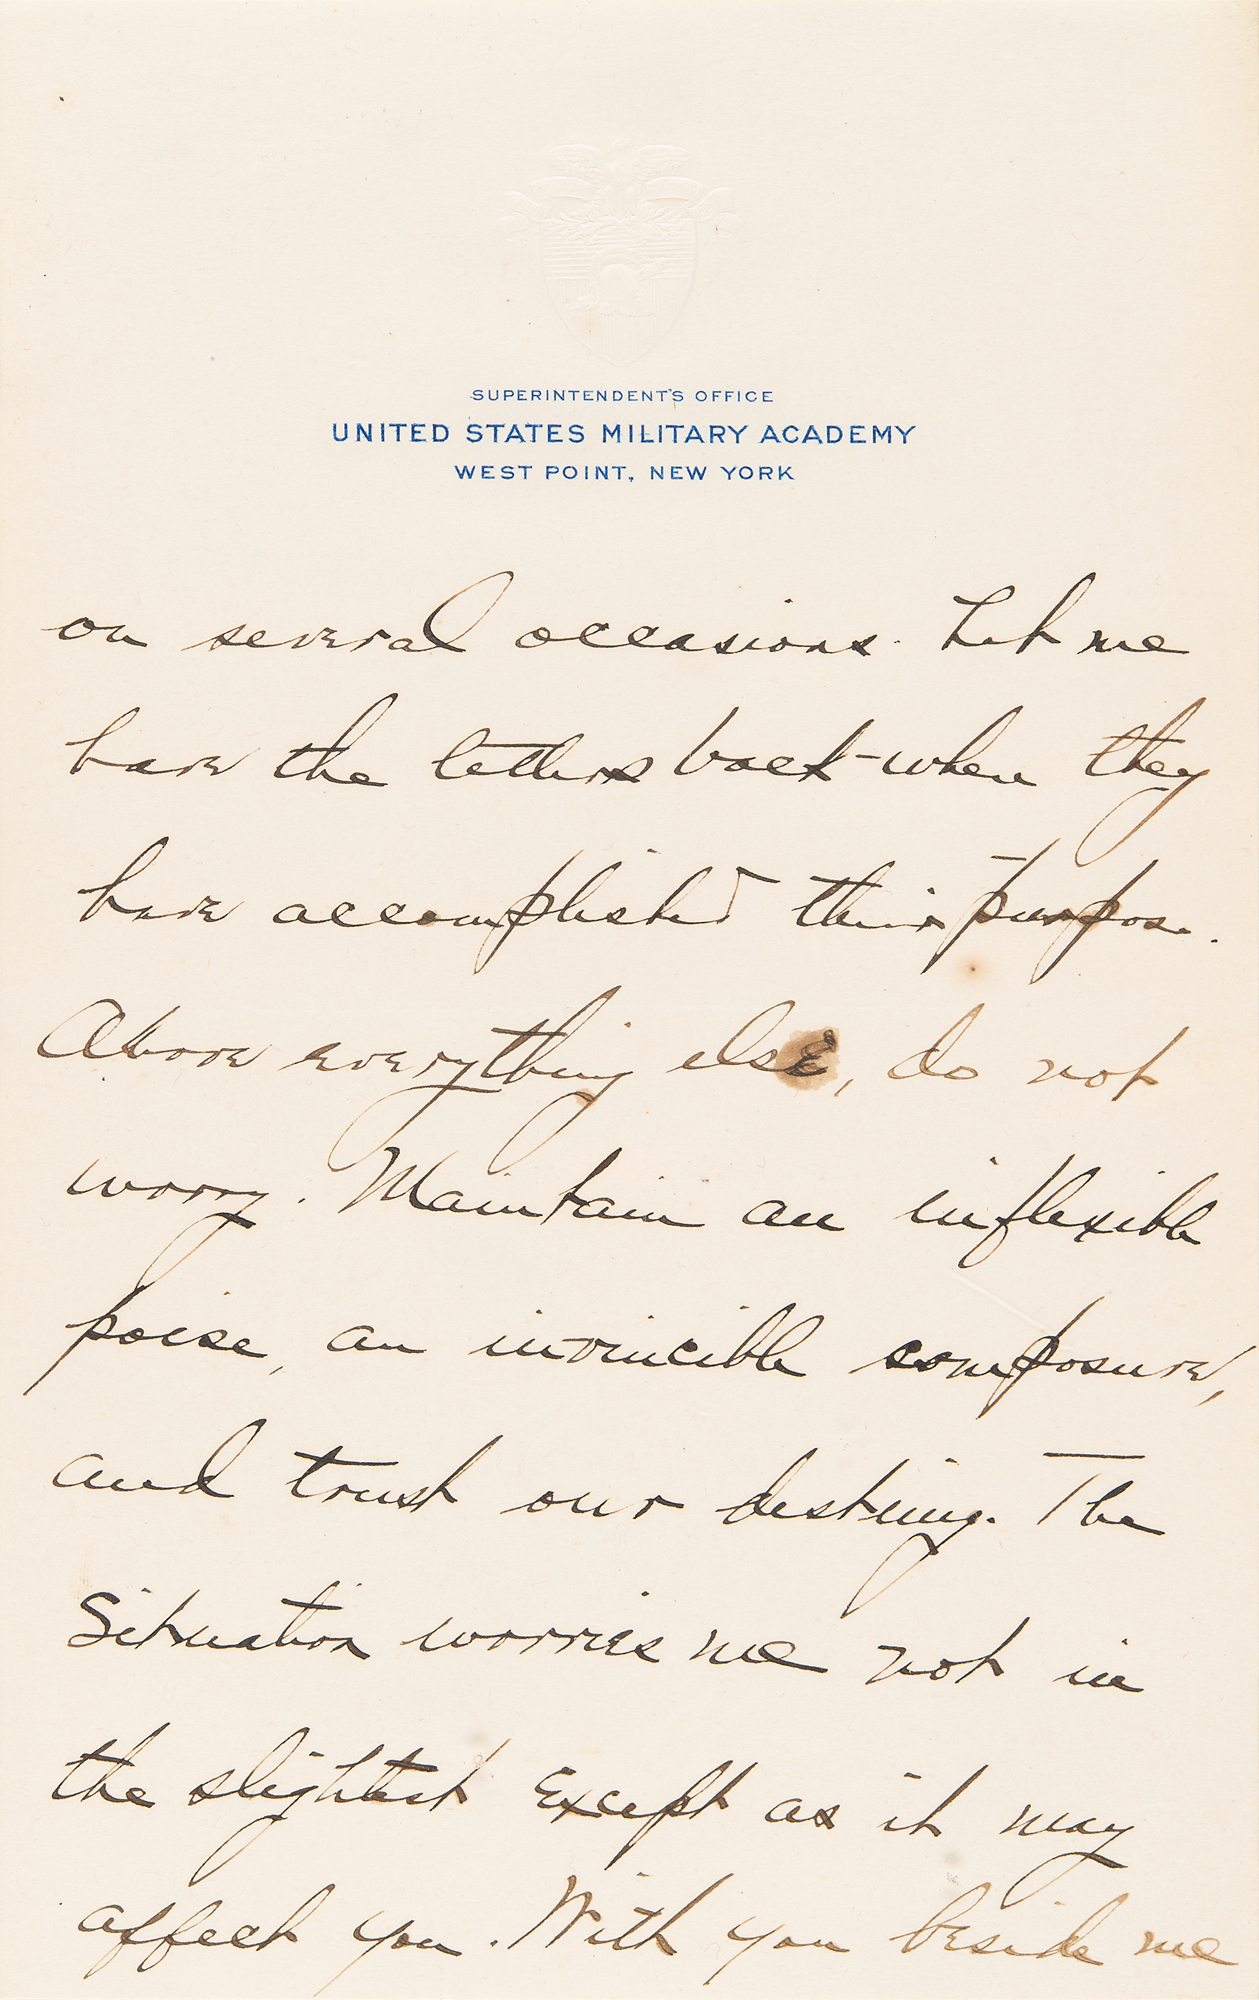 SUPERINTENDENT'S OFFICE
UNITED STATES MILITARY ACADEMY
WEST POINT, NEW YORK
on several occasions. Let me
have the letters back when they
have accomplished their purpose.
Above everything else, do not
worry. Maintain an inflexible
poise, an invincible composure,
and trust our destiny. The
situation worries me not in
the slightest except as it may
affect you. With you beside me